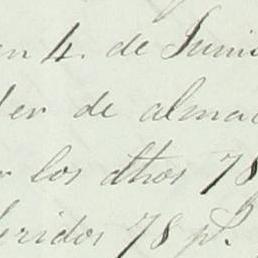 en 4. de Juni
der de alma
r los dhos 78
feridos 78 p.